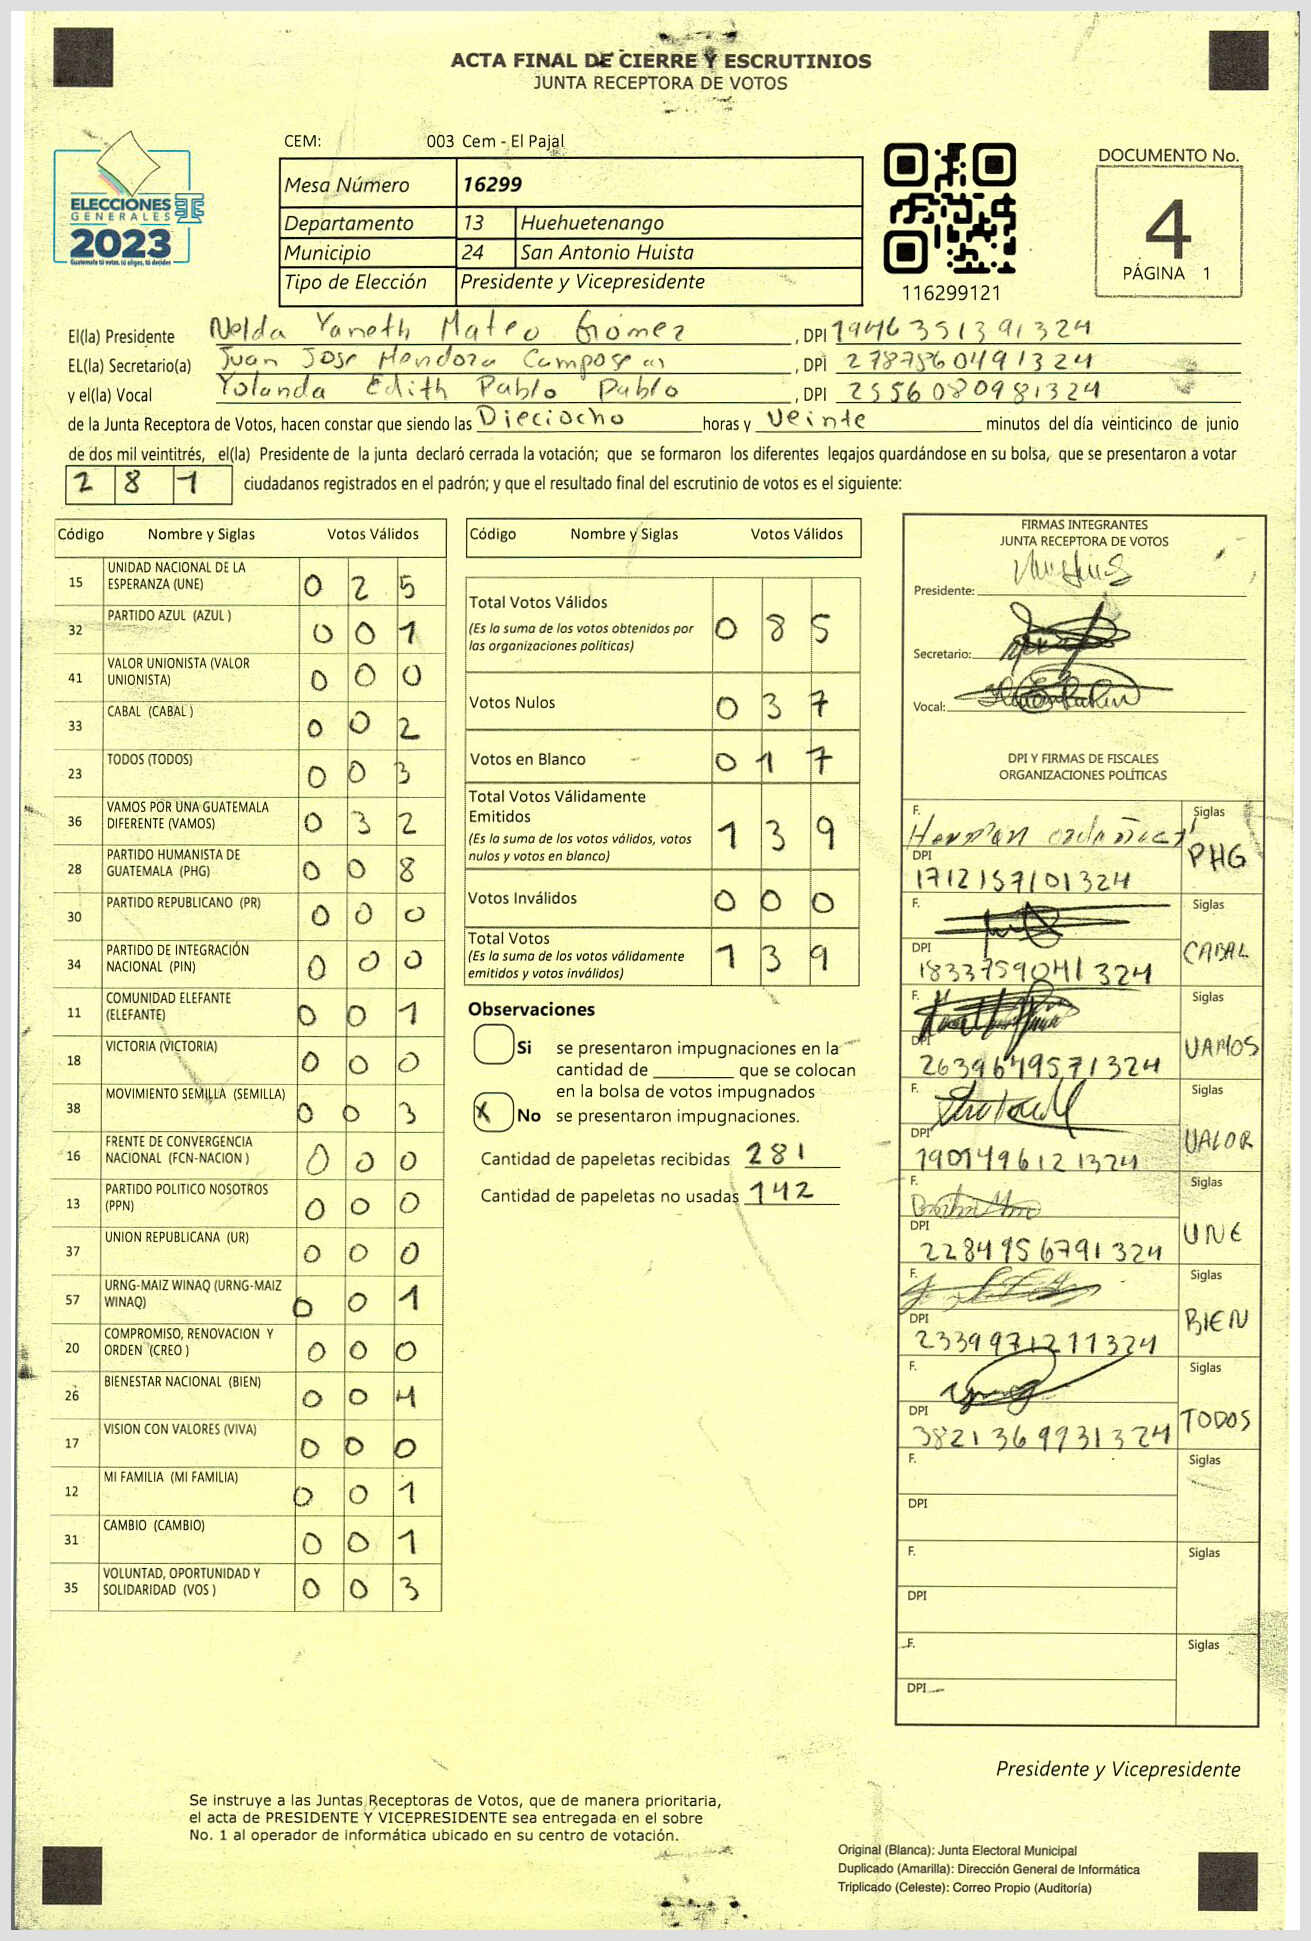 ACTA FINAL DE CIERRE Y ESCRUTINIOS
JUNTA RECEPTORA DE VOTOS
CEM: 003 Cem - El Pajal
ELECCIONES
GENERALES
2023
Guatemala tú votas, tú eliges, tú decides
Mesa Número 16299
Departamento 13 Huehuetenango
Municipio 24 San Antonio Huista
Tipo de Elección Presidente y Vicepresidente
116299121
DOCUMENTO No.
4
PÁGINA 1
El(la) Presidente Nelda Yaneth Mateo Gómez, DPI 1946351391324
EL(la) Secretario(a) Juan Jose Mendoza Campose, DPI 2787560491324
y el(la) Vocal Yolanda Edith Pablo Pablo, DPI 2556080981324
de la Junta Receptora de Votos, hacen constar que siendo las Dieciocho horas y Veinte minutos del día veinticinco de junio
de dos mil veintitrés, el(la) Presidente de la junta declaró cerrada la votación; que se formaron los diferentes legajos guardándose en su bolsa, que se presentaron a votar
2 8 1 ciudadanos registrados en el padrón; y que el resultado final del escrutinio de votos es el siguiente:
Código Nombre y Siglas Votos Válidos
15 UNIDAD NACIONAL DE LA ESPERANZA (UNE) 0 2 5
32 PARTIDO AZUL (AZUL ) 0 0 1
41 VALOR UNIONISTA (VALOR UNIONISTA) 0 0 0
33 CABAL (CABAL ) 0 0 2
23 TODOS (TODOS) 0 0 3
36 VAMOS POR UNA GUATEMALA DIFERENTE (VAMOS) 0 3 2
28 PARTIDO HUMANISTA DE GUATEMALA (PHG) 0 0 8
30 PARTIDO REPUBLICANO (PR) 0 0 0
34 PARTIDO DE INTEGRACIÓN NACIONAL (PIN) 0 0 0
11 COMUNIDAD ELEFANTE (ELEFANTE) 0 0 1
18 VICTORIA (VICTORIA) 0 0 0
38 MOVIMIENTO SEMILLA (SEMILLA) 0 0 3
16 FRENTE DE CONVERGENCIA NACIONAL (FCN-NACION ) 0 0 0
13 PARTIDO POLITICO NOSOTROS (PPN) 0 0 0
37 UNION REPUBLICANA (UR) 0 0 0
57 URNG-MAIZ WINAQ (URNG-MAIZ WINAQ) 0 0 1
20 COMPROMISO, RENOVACION Y ORDEN (CREO ) 0 0 0
26 BIENESTAR NACIONAL (BIEN) 0 0 4
17 VISION CON VALORES (VIVA) 0 0 0
12 MI FAMILIA (MI FAMILIA) 0 0 1
31 CAMBIO (CAMBIO) 0 0 1
35 VOLUNTAD, OPORTUNIDAD Y SOLIDARIDAD (VOS ) 0 0 3
Código Nombre y Siglas Votos Válidos
Total Votos Válidos 0 8 5
(Es la suma de los votos obtenidos por
las organizaciones políticas)
Votos Nulos 0 3 7
Votos en Blanco 0 1 7
Total Votos Válidamente
Emitidos 1 3 9
(Es la suma de los votos válidos, votos
nulos y votos en blanco)
Votos Inválidos 0 0 0
Total Votos 1 3 9
(Es la suma de los votos válidamente
emitidos y votos inválidos)
Observaciones
Si se presentaron impugnaciones en la
cantidad de ________ que se colocan
en la bolsa de votos impugnados
X No se presentaron impugnaciones.
Cantidad de papeletas recibidas 281
Cantidad de papeletas no usadas 142
FIRMAS INTEGRANTES
JUNTA RECEPTORA DE VOTOS
Presidente:
Secretario:
Vocal:
DPI Y FIRMAS DE FISCALES
ORGANIZACIONES POLÍTICAS
F. Siglas
DPI PHG
1712157101324
F. Siglas
DPI CABAL
1833759041324
F. Siglas
DPI VAMOS
2639649571324
F. Siglas
DPI VALOR
1901496121324
F. Siglas
DPI UNE
2284956791324
F. Siglas
DPI BIEN
2339971211324
F. Siglas
DPI TODOS
3821369931324
F. Siglas
DPI
F. Siglas
DPI
F. Siglas
DPI
Presidente y Vicepresidente
Se instruye a las Juntas Receptoras de Votos, que de manera prioritaria,
el acta de PRESIDENTE Y VICEPRESIDENTE sea entregada en el sobre
No. 1 al operador de informática ubicado en su centro de votación.
Original (Blanca): Junta Electoral Municipal
Duplicado (Amarilla): Dirección General de Informática
Triplicado (Celeste): Correo Propio (Auditoría)